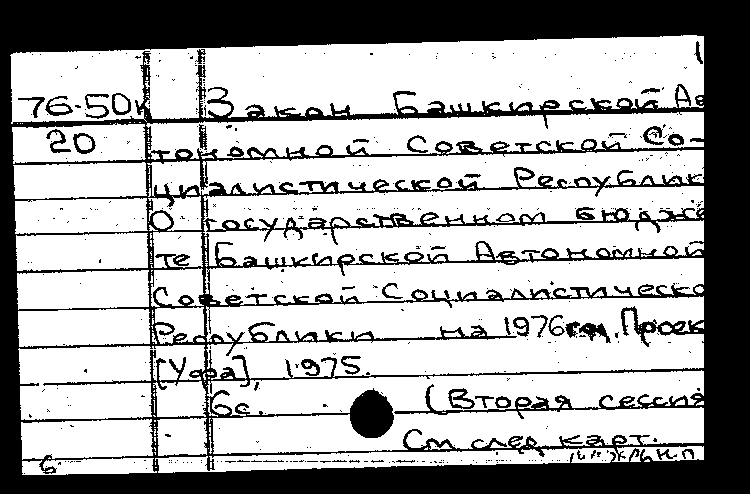 76-50к Закон Башкирской Ав
20 тономной Советской Со-
циалистической Республик
О государственном бюдже
те Башкирской Автономной
Советской Социалистическо
Республики на 1976 год. Проек
[Уфа], 1975.
6с. (Вторая сессия
См след карт.
6